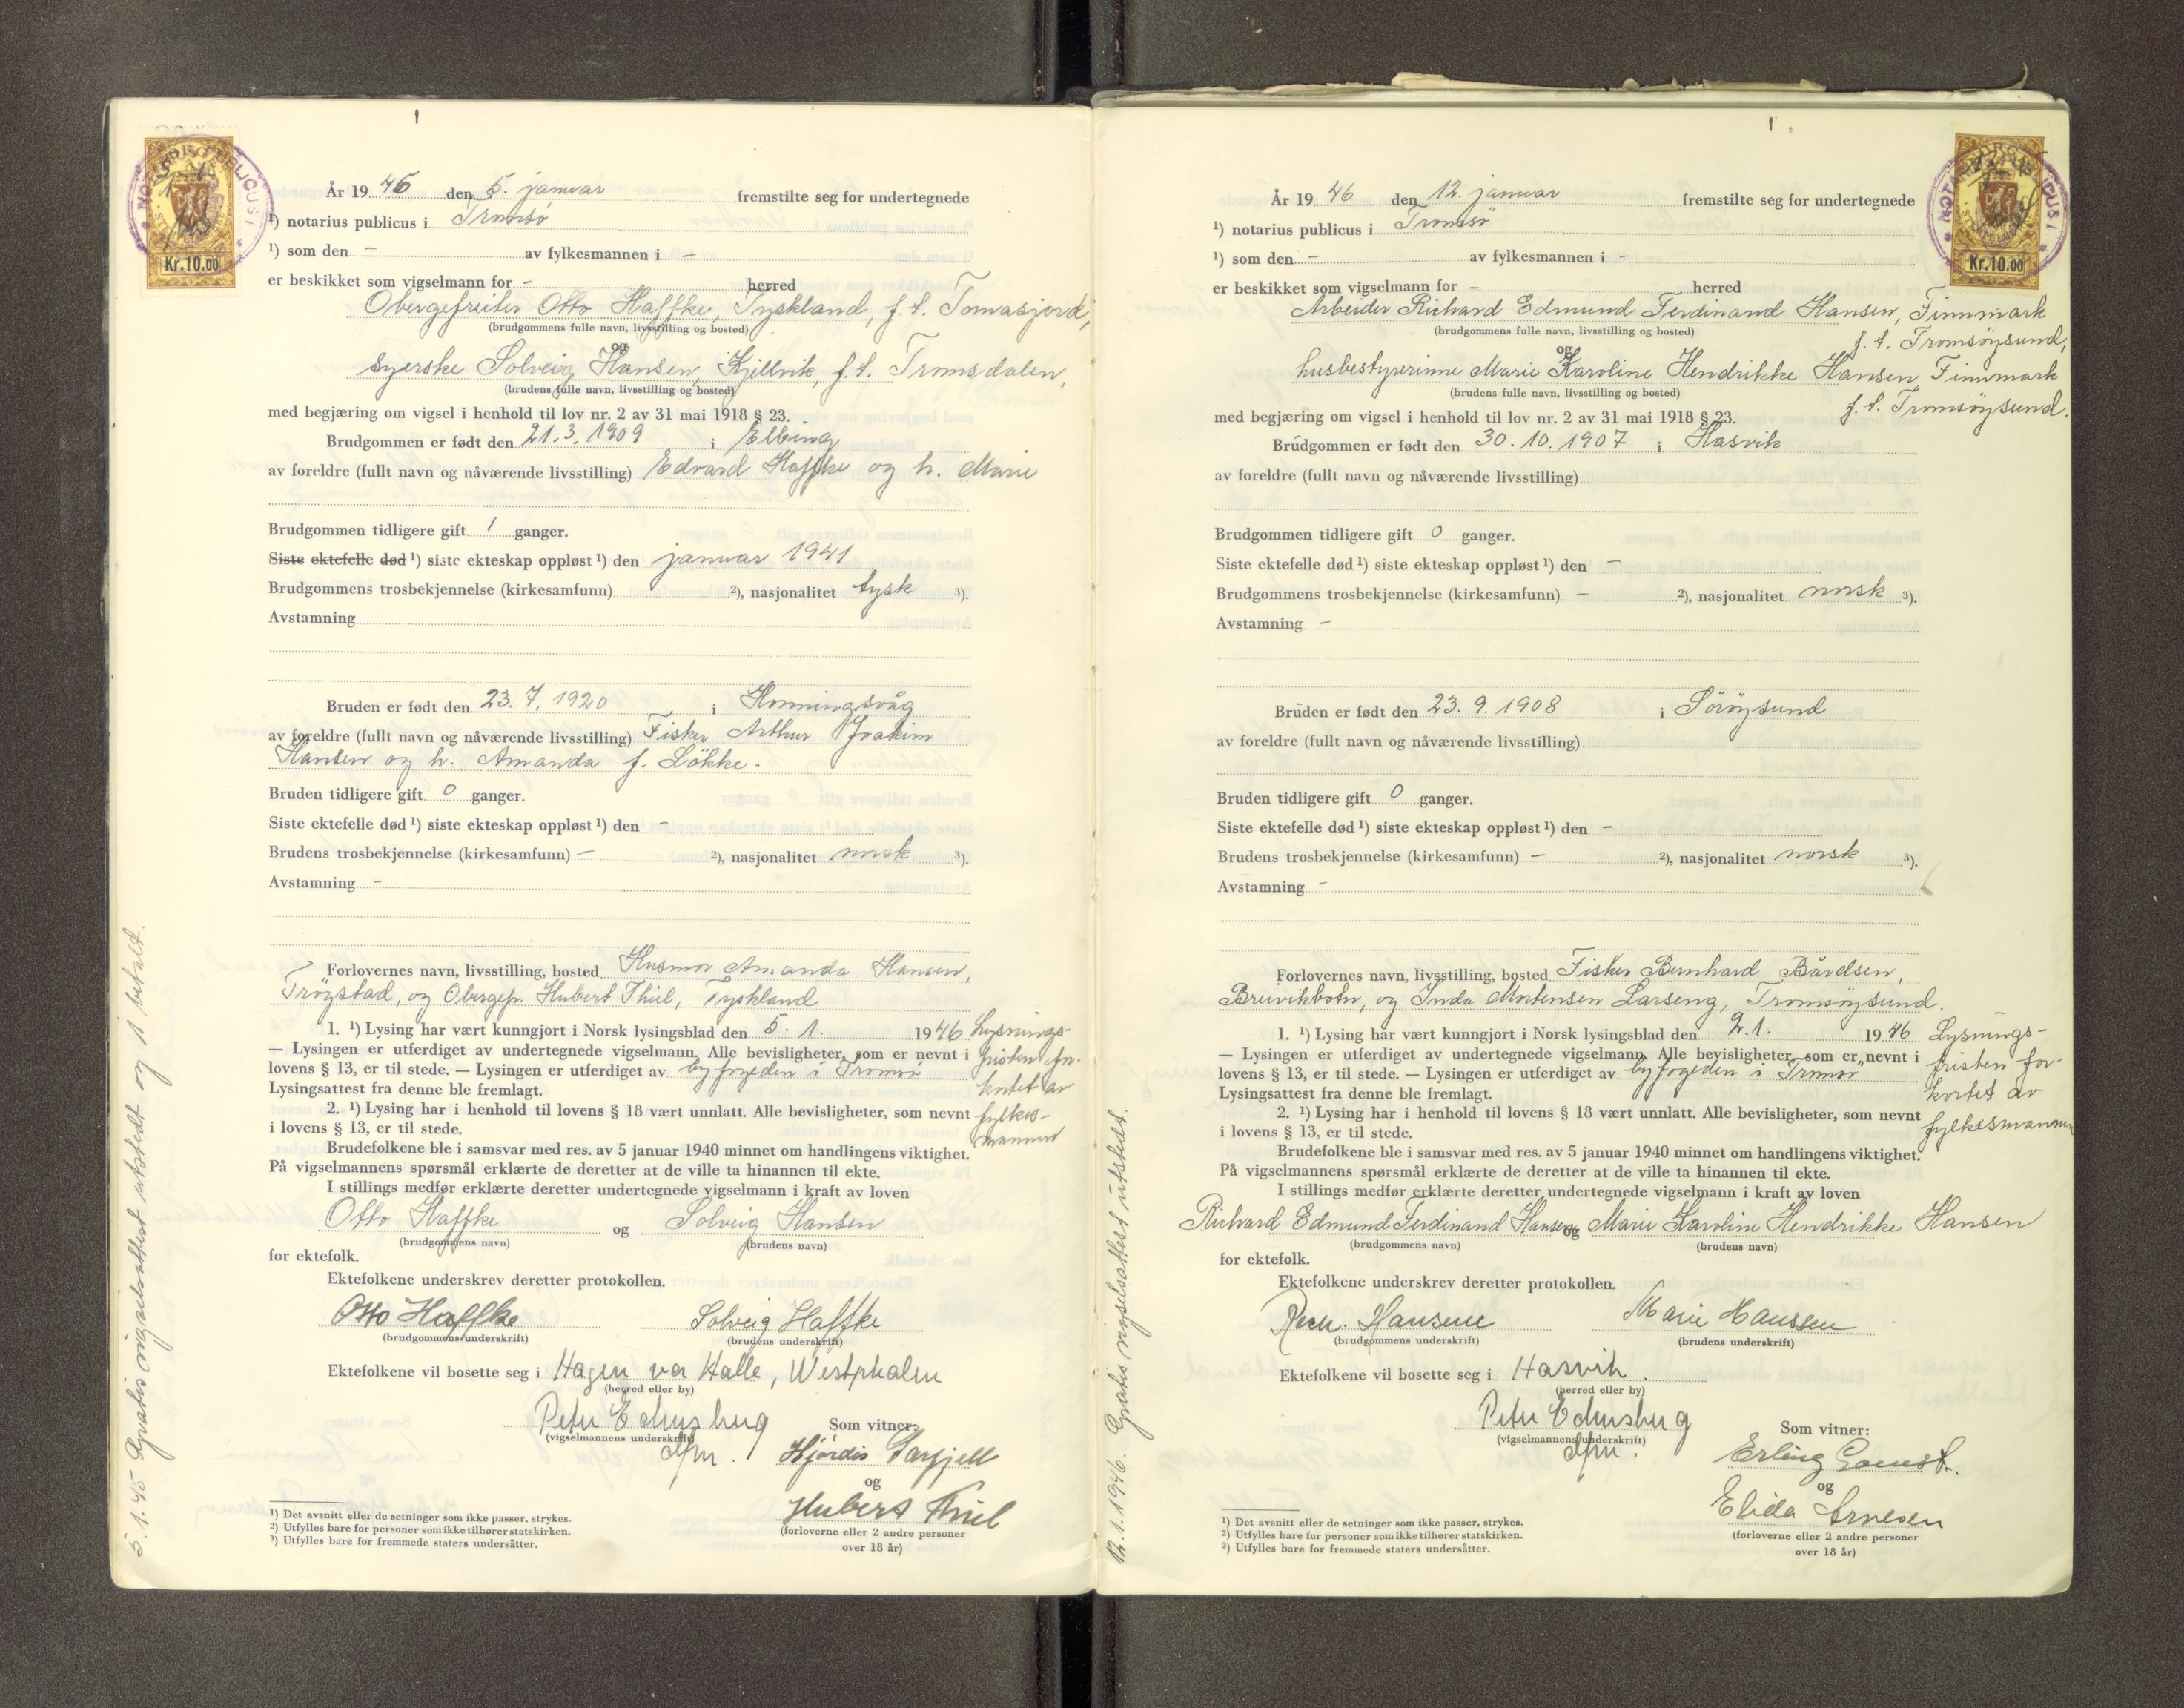 År 1946 den 5. januar fremstilte seg for undertegnede
¹) notarius publicus i Tromsø
¹) som den – av fylkesmannen i –
er beskikket som vigselmann for – herred
Obergefreiter Otto Haffke, Tyskland, f. t. Tomasjord,
(brudgommens fulle navn, livsstilling og bosted)
og
syerske Solveig Hansen, Kjellvik, f. t. Tromsdalen,
(brudens fulle navn, livsstilling og bosted)
med begjæring om vigsel i henhold til lov nr. 2 av 31 mai 1918 § 23.
Brudgommen er født den 21.3.1909 i Elbing
av foreldre (fullt navn og nåværende livsstilling) Edvard Haffke og h. Marie
Brudgommen tidligere gift 1 ganger.
Siste ektefelle død ¹) siste ekteskap oppløst ¹) den januar 1941
Brudgommens trosbekjennelse (kirkesamfunn) ²), nasjonalitet tysk ³).
Avstamning
Bruden er født den 23.7.1920 i Honningsvåg
av foreldre (fullt navn og nåværende livsstilling) Fisker Arthur Joakim
Hansen og h. Amanda f. Løkke.
Bruden tidligere gift 0 ganger.
Siste ektefelle død ¹) siste ekteskap oppløst ¹) den –
Brudens trosbekjennelse (kirkesamfunn) – ²), nasjonalitet norsk ³).
Avstamning –
Forlovernes navn, livsstilling, bosted Husmor Amanda Hansen,
Trøgstad, og Obergefr. Hubert Thiel, Tyskland
1. ¹) Lysing har vært kunngjort i Norsk lysingsblad den 5. 1. 1946
— Lysingen er utferdiget av undertegnede vigselmann. Alle bevisligheter, som er nevnt i
lovens § 13, er til stede. — Lysingen er utferdiget av byfogeden i Tromsø
Lysingsattest fra denne ble fremlagt.
2. ¹) Lysing har i henhold til lovens § 18 vært unnlatt. Alle bevisligheter, som nevnt
i lovens § 13, er til stede.
Lysnings-
fristen for-
kortet av
fylkes-
mannen
Brudefolkene ble i samsvar med res. av 5 januar 1940 minnet om handlingens viktighet.
På vigselmannens spørsmål erklærte de deretter at de ville ta hinannen til ekte.
I stillings medfør erklærte deretter undertegnede vigselmann i kraft av loven
Otto Haffke og Solveig Hansen
(brudgommens navn) (brudens navn)
for ektefolk.
Ektefolkene underskrev deretter protokollen.
Otto Haffke Solveig Haffke
(brudgommens underskrift) (brudens underskrift)
Ektefolkene vil bosette seg i Hagen vor Halle, Westphalen
(herred eller by)
Som vitner:
(vigselmannens underskrift)
Hjördis
og
Hubert Thiel
(forloverne eller 2 andre personer
over 18 år)
¹) Det avsnitt eller de setninger som ikke passer, strykes.
²) Utfylles bare for personer som ikke tilhører statskirken.
³) Utfylles bare for fremmede staters undersåtter.
5.1.45 Gratis vigselsattest utstedt og 1 betalt.
Kr.10.00
År 1946 den 12. januar fremstilte seg for undertegnede
¹) notarius publicus i Tromsö
¹) som den – av fylkesmannen i –
er beskikket som vigselmann for – herred
Arbeider Richard Edmund Ferdinand Hansen, Finnmark
f. t. Tromsöysund,
(brudgommens fulle navn, livsstilling og bosted)
og
husbestyrerinne Marie Karoline Hendrikke Hansen, Finnmark
f. t. Tromsöysund.
(brudens fulle navn, livsstilling og bosted)
med begjæring om vigsel i henhold til lov nr. 2 av 31 mai 1918 § 23.
Brudgommen er født den 30.10.1907 i Hasvik
av foreldre (fullt navn og nåværende livsstilling)
Brudgommen tidligere gift 0 ganger.
Siste ektefelle død ¹) siste ekteskap oppløst ¹) den –
Brudgommens trosbekjennelse (kirkesamfunn) – ²), nasjonalitet norsk ³).
Avstamning –
Bruden er født den 23.9.1908 i Söröysund
av foreldre (fullt navn og nåværende livsstilling)
Bruden tidligere gift 0 ganger.
Siste ektefelle død ¹) siste ekteskap oppløst ¹) den –
Brudens trosbekjennelse (kirkesamfunn) – ²), nasjonalitet norsk ³).
Avstamning –
Forlovernes navn, livsstilling, bosted Fisker Bernhard Bårdsen,
Breivikbotn, og Inda Mortensen Larseng, Tromsöysund.
1. ¹) Lysing har vært kunngjort i Norsk lysingsblad den 2.1. 1946
— Lysingen er utferdiget av undertegnede vigselmann. Alle bevisligheter, som er nevnt i
lovens § 13, er til stede. — Lysingen er utferdiget av byfogeden i Tromsö
Lysingsattest fra denne ble fremlagt.
2. ¹) Lysing har i henhold til lovens § 18 vært unnlatt. Alle bevisligheter, som nevnt
i lovens § 13, er til stede.
Lysnings-
fristen for-
kortet av
fylkesmannen
Brudefolkene ble i samsvar med res. av 5 januar 1940 minnet om handlingens viktighet.
På vigselmannens spørsmål erklærte de deretter at de ville ta hinannen til ekte.
I stillings medfør erklærte deretter undertegnede vigselmann i kraft av loven
Richard Edmund Ferdinand Hansen og Marie Karoline Hendrikke Hansen
(brudgommens navn) (brudens navn)
for ektefolk.
Ektefolkene underskrev deretter protokollen.
Hansen Marie Hanssen
(brudgommens underskrift) (brudens underskrift)
Ektefolkene vil bosette seg i Hasvik.
(herred eller by)
Som vitner:
(vigselmannens underskrift)
Erling
og
Elida Arnesen
(forloverne eller 2 andre personer
over 18 år)
¹) Det avsnitt eller de setninger som ikke passer, strykes.
²) Utfylles bare for personer som ikke tilhører statskirken.
³) Utfylles bare for fremmede staters undersåtter.
12.1.1946. Gratis vigselsattest utstedt.
Kr.10.00